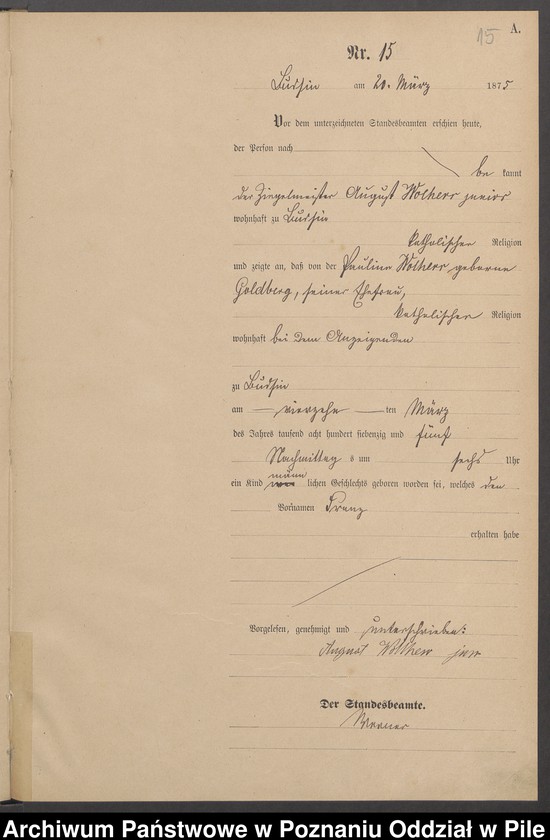 15 A.
Nr. 15
Bussin am 20. März 1875
Vor dem unterzeichneten Standesbeamten erschien heute,
der Person nach
be kannt
der Ziegelmeister August Wolherr junior
wohnhaft zu Bussin
katholischer Religion
und zeigte an, daß von der Pauline Wolherr geborne
Goldberg, seiner Ehefrau,
katholischer Religion
wohnhaft bei dem Anzeigenden
zu Bussin
am vierzehn ten März
des Jahres tausend acht hundert siebenzig und fünf
Nachmittag s um sechs Uhr
männ
ein Kind lichen Geschlechts geboren worden sei, welches den
Vornamen Franz
erhalten habe
Vorgelesen, genehmigt und unterschrieben:
August jun
Der Standesbeamte.
Archiwum Państwowe w Poznaniu Oddział w Pile